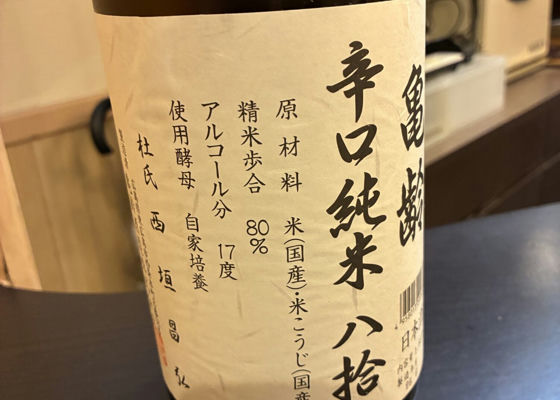 亀齢
辛口純米 八拾
原材料 米(国産)・米こうじ(国産
精米歩合 80%
アルコール分 17度
使用酵母 自家培養
杜氏 西垣昌弘
日本